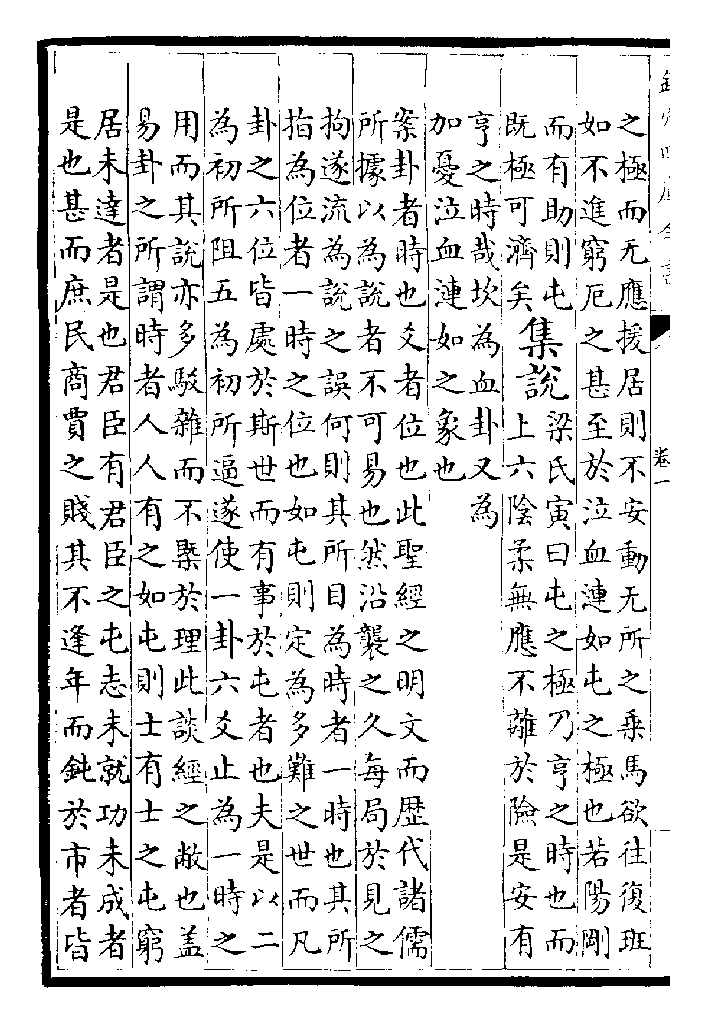 欽定四庫全書
卷一
之極而无應援居則不安動无所之乘馬欲往復班
如不進窮厄之甚至於泣血漣如屯之極也若陽剛
而有助則屯
既極可濟矣
集說
梁氏寅曰屯之極乃亨之時也而
上六陰柔無應不離於險是安有
亨之時哉坎為血卦又為
加憂泣血漣如之象也
案卦者時也爻者位也此聖經之明文而歴代諸儒
所據以為說者不可易也然沿襲之久每局於見之
拘遂流為說之誤何則其所目為時者一時也其所
指為位者一時之位也如屯則定為多難之世而凡
卦之六位皆處於斯世而有事於屯者也夫是以二
為初所阻五為初所逼遂使一卦六爻止為一時之
用而其說亦多駁雜而不槩於理此談經之敝也盖
易卦之所謂時者人人有之如屯則士有士之屯窮
居未達者是也君臣有君臣之屯志未就功未成者
是也甚而庶民商賈之賤其不逢年而鈍於市者皆